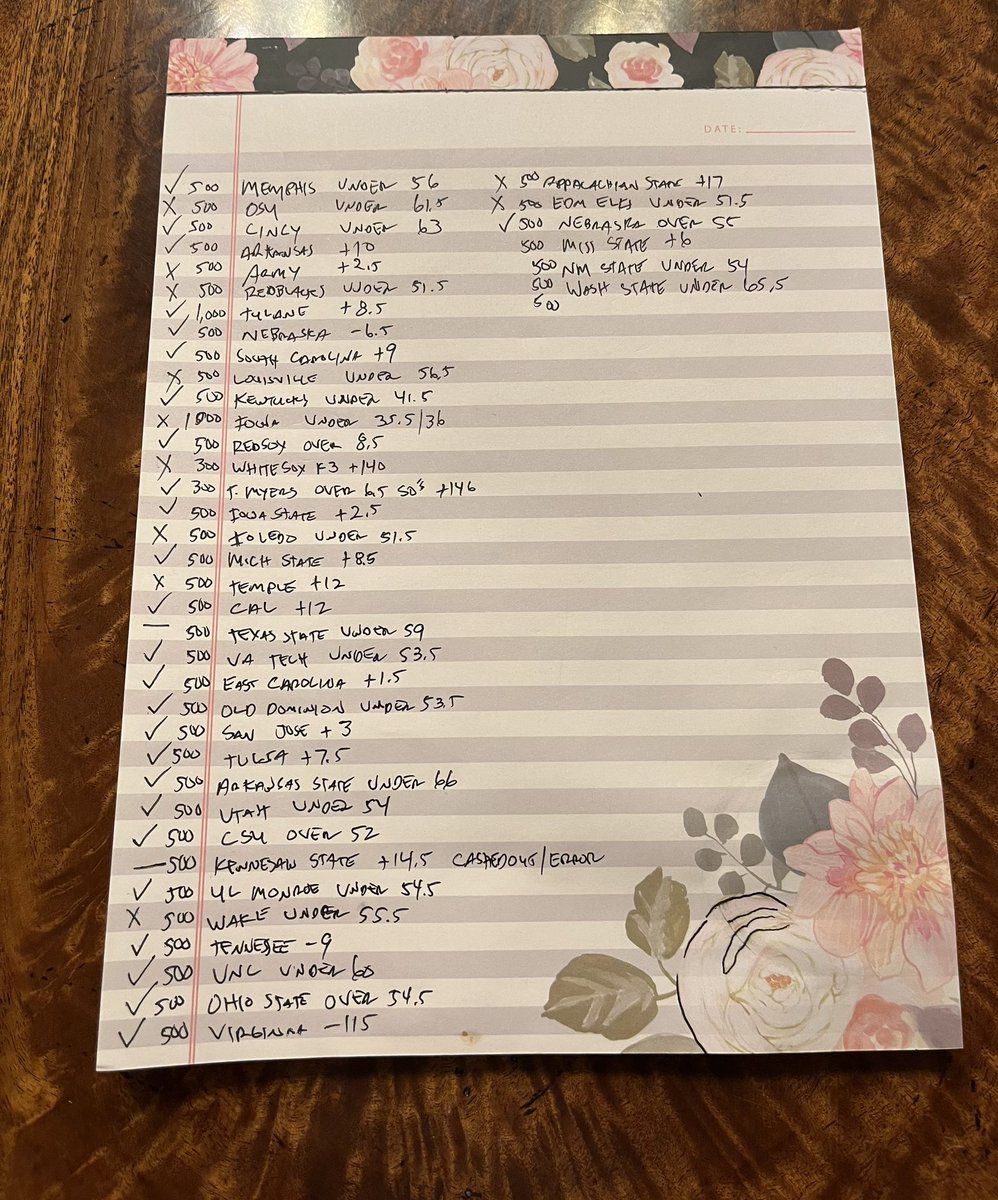 DATE:
✓ 500 MEMPHIS UNDER 56
X 500 OSU UNDER 61.5
✓ 500 CINCY UNDER 63
✓ 500 ARKANSAS +10
X 500 ARMY +2.5
X 500 REDBLACKS UNDER 51.5
✓ 1,000 TULANE +8.5
✓ 500 NEBRASKA -6.5
✓ 500 SOUTH CAROLINA +9
X 500 LOUISVILLE UNDER 56.5
✓ 500 KENTUCKY UNDER 41.5
X 1,000 IOWA UNDER 35.5/36
✓ 500 REDSOX OVER 8.5
X 300 WHITESOX F3 +140
✓ 300 T. MYERS OVER 6.5 SO's +146
✓ 500 IOWA STATE +2.5
X 500 TOLEDO UNDER 51.5
✓ 500 MICH STATE +8.5
X 500 TEMPLE +12
✓ 500 CAL +12
— 500 TEXAS STATE UNDER 59
✓ 500 VA TECH UNDER 53.5
✓ 500 EAST CAROLINA +1.5
✓ 500 OLD DOMINION UNDER 53.5
✓ 500 SAN JOSE +3
✓ 500 TULSA +7.5
✓ 500 ARKANSAS STATE UNDER 66
✓ 500 UTAH UNDER 54
✓ 500 CSU OVER 52
— 500 KENNESAW STATE +14.5 CASHEDOUT/ERROR
✓ 500 UL MONROE UNDER 54.5
X 500 WAKE UNDER 55.5
✓ 500 TENNESEE -9
✓ 500 UNC UNDER 60
✓ 500 OHIO STATE OVER 54.5
✓ 500 VIRGINIA -115
X 500 APPALACHIAN STATE +17
X 500 EDM ELKS UNDER 51.5
✓ 500 NEBRASKA OVER 55
500 MISS STATE +6
500 NM STATE UNDER 54
500 WASH STATE UNDER 65.5
500